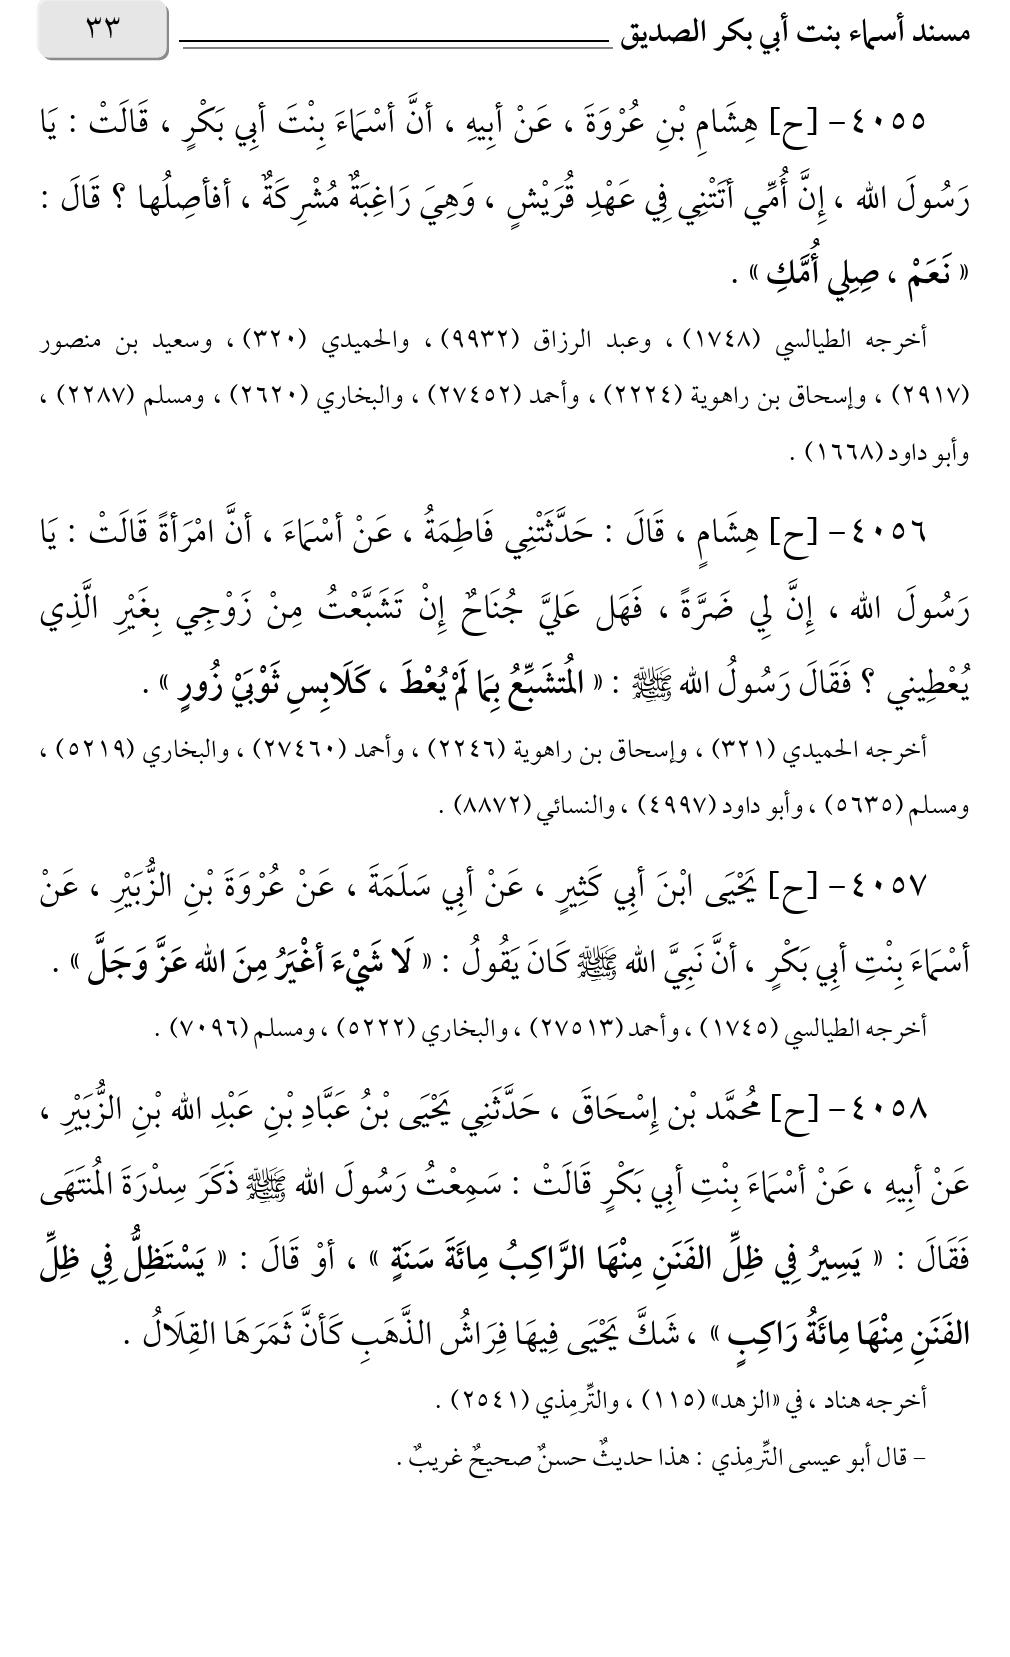 مسند أسماء بنت أبي بكر الصديق ٣٣
٤٠٥٥- [ح] هِشَامِ بْنِ عُرْوَةَ ، عَنْ أبِيهِ ، أنَّ أسْمَاءَ بِنْتَ أبِي بَكْرٍ ، قَالَتْ : يَا
رَسُولَ الله ، إِنَّ أُمِّي أتَتْنِي فِي عَهْدِ قُرَيْشٍ ، وَهِيَ رَاغِبَةٌ مُشْرِكَةٌ ، أفأصِلُها ؟ قَالَ :
« نَعَمْ ، صِلِي أُمَّكِ » .
أخرجه الطيالسي (١٧٤٨) ، وعبد الرزاق (٩٩٣٢) ، والحميدي (٣٢٠) ، وسعيد بن منصور
(٢٩١٧) ، وإسحاق بن راهوية (٢٢٢٤) ، وأحمد (٢٧٤٥٢) ، والبخاري (٢٦٢٠) ، ومسلم (٢٢٨٧) ،
وأبو داود (١٦٦٨) .
٤٠٥٦- [ح] هِشَامٍ ، قَالَ : حَدَّثَتْنِي فَاطِمَةُ ، عَنْ أسْمَاءَ ، أنَّ امْرَأةً قَالَتْ : يَا
رَسُولَ الله ، إِنَّ لِي ضَرَّةً ، فَهَل عَلَيَّ جُنَاحٌ إِنْ تَشَبَّعْتُ مِنْ زَوْجِي بِغَيْرِ الَّذِي
يُعْطِيني ؟ فَقَالَ رَسُولُ الله ﷺ : « المُتشَبِّعُ بِمَا لَمْ يُعْطَ ، كَلَابِسِ ثَوْبَيْ زُورٍ » .
أخرجه الحميدي (٣٢١) ، وإسحاق بن راهوية (٢٢٤٦) ، وأحمد (٢٧٤٦٠) ، والبخاري (٥٢١٩) ،
ومسلم (٥٦٣٥) ، وأبو داود (٤٩٩٧) ، والنسائي (٨٨٧٢) .
٤٠٥٧- [ح] يَحْيَى ابْنَ أبِي كَثِيرٍ ، عَنْ أبِي سَلَمَةَ ، عَنْ عُرْوَةَ بْنِ الزُّبَيْرِ ، عَنْ
أسْمَاءَ بِنْتِ أبِي بَكْرٍ ، أنَّ نَبِيَّ الله ﷺ كَانَ يَقُولُ : « لَا شَيْءَ أغْيَرُ مِنَ الله عَزَّ وَجَلَّ » .
أخرجه الطيالسي (١٧٤٥) ، وأحمد (٢٧٥١٣) ، والبخاري (٥٢٢٢) ، ومسلم (٧٠٩٦) .
٤٠٥٨- [ح] مُحمَّد بْن إِسْحَاقَ ، حَدَّثَنِي يَحْيَى بْنُ عَبَّادِ بْنِ عَبْدِ الله بْنِ الزُّبَيْرِ ،
عَنْ أبِيهِ ، عَنْ أسْمَاءَ بِنْتِ أبِي بَكْرٍ قَالَتْ : سَمِعْتُ رَسُولَ الله ﷺ ذَكَرَ سِدْرَةَ المُنتَهَى
فَقَالَ : « يَسِيرُ فِي ظِلِّ الفَنَنِ مِنْهَا الرَّاكِبُ مِائَةَ سَنَةٍ » ، أوْ قَالَ : « يَسْتَظِلُّ فِي ظِلِّ
الفَنَنِ مِنْهَا مِائَةُ رَاكِبٍ » ، شَكَّ يَحْيَى فِيهَا فِرَاشُ الذَّهَبِ كَأنَّ ثَمَرَهَا القِلَالُ .
أخرجه هناد ، في «الزهد» (١١٥) ، والتِّرمِذي (٢٥٤١) .
- قال أبو عيسى التِّرمِذي : هذا حديثٌ حسنٌ صحيحٌ غريبٌ .